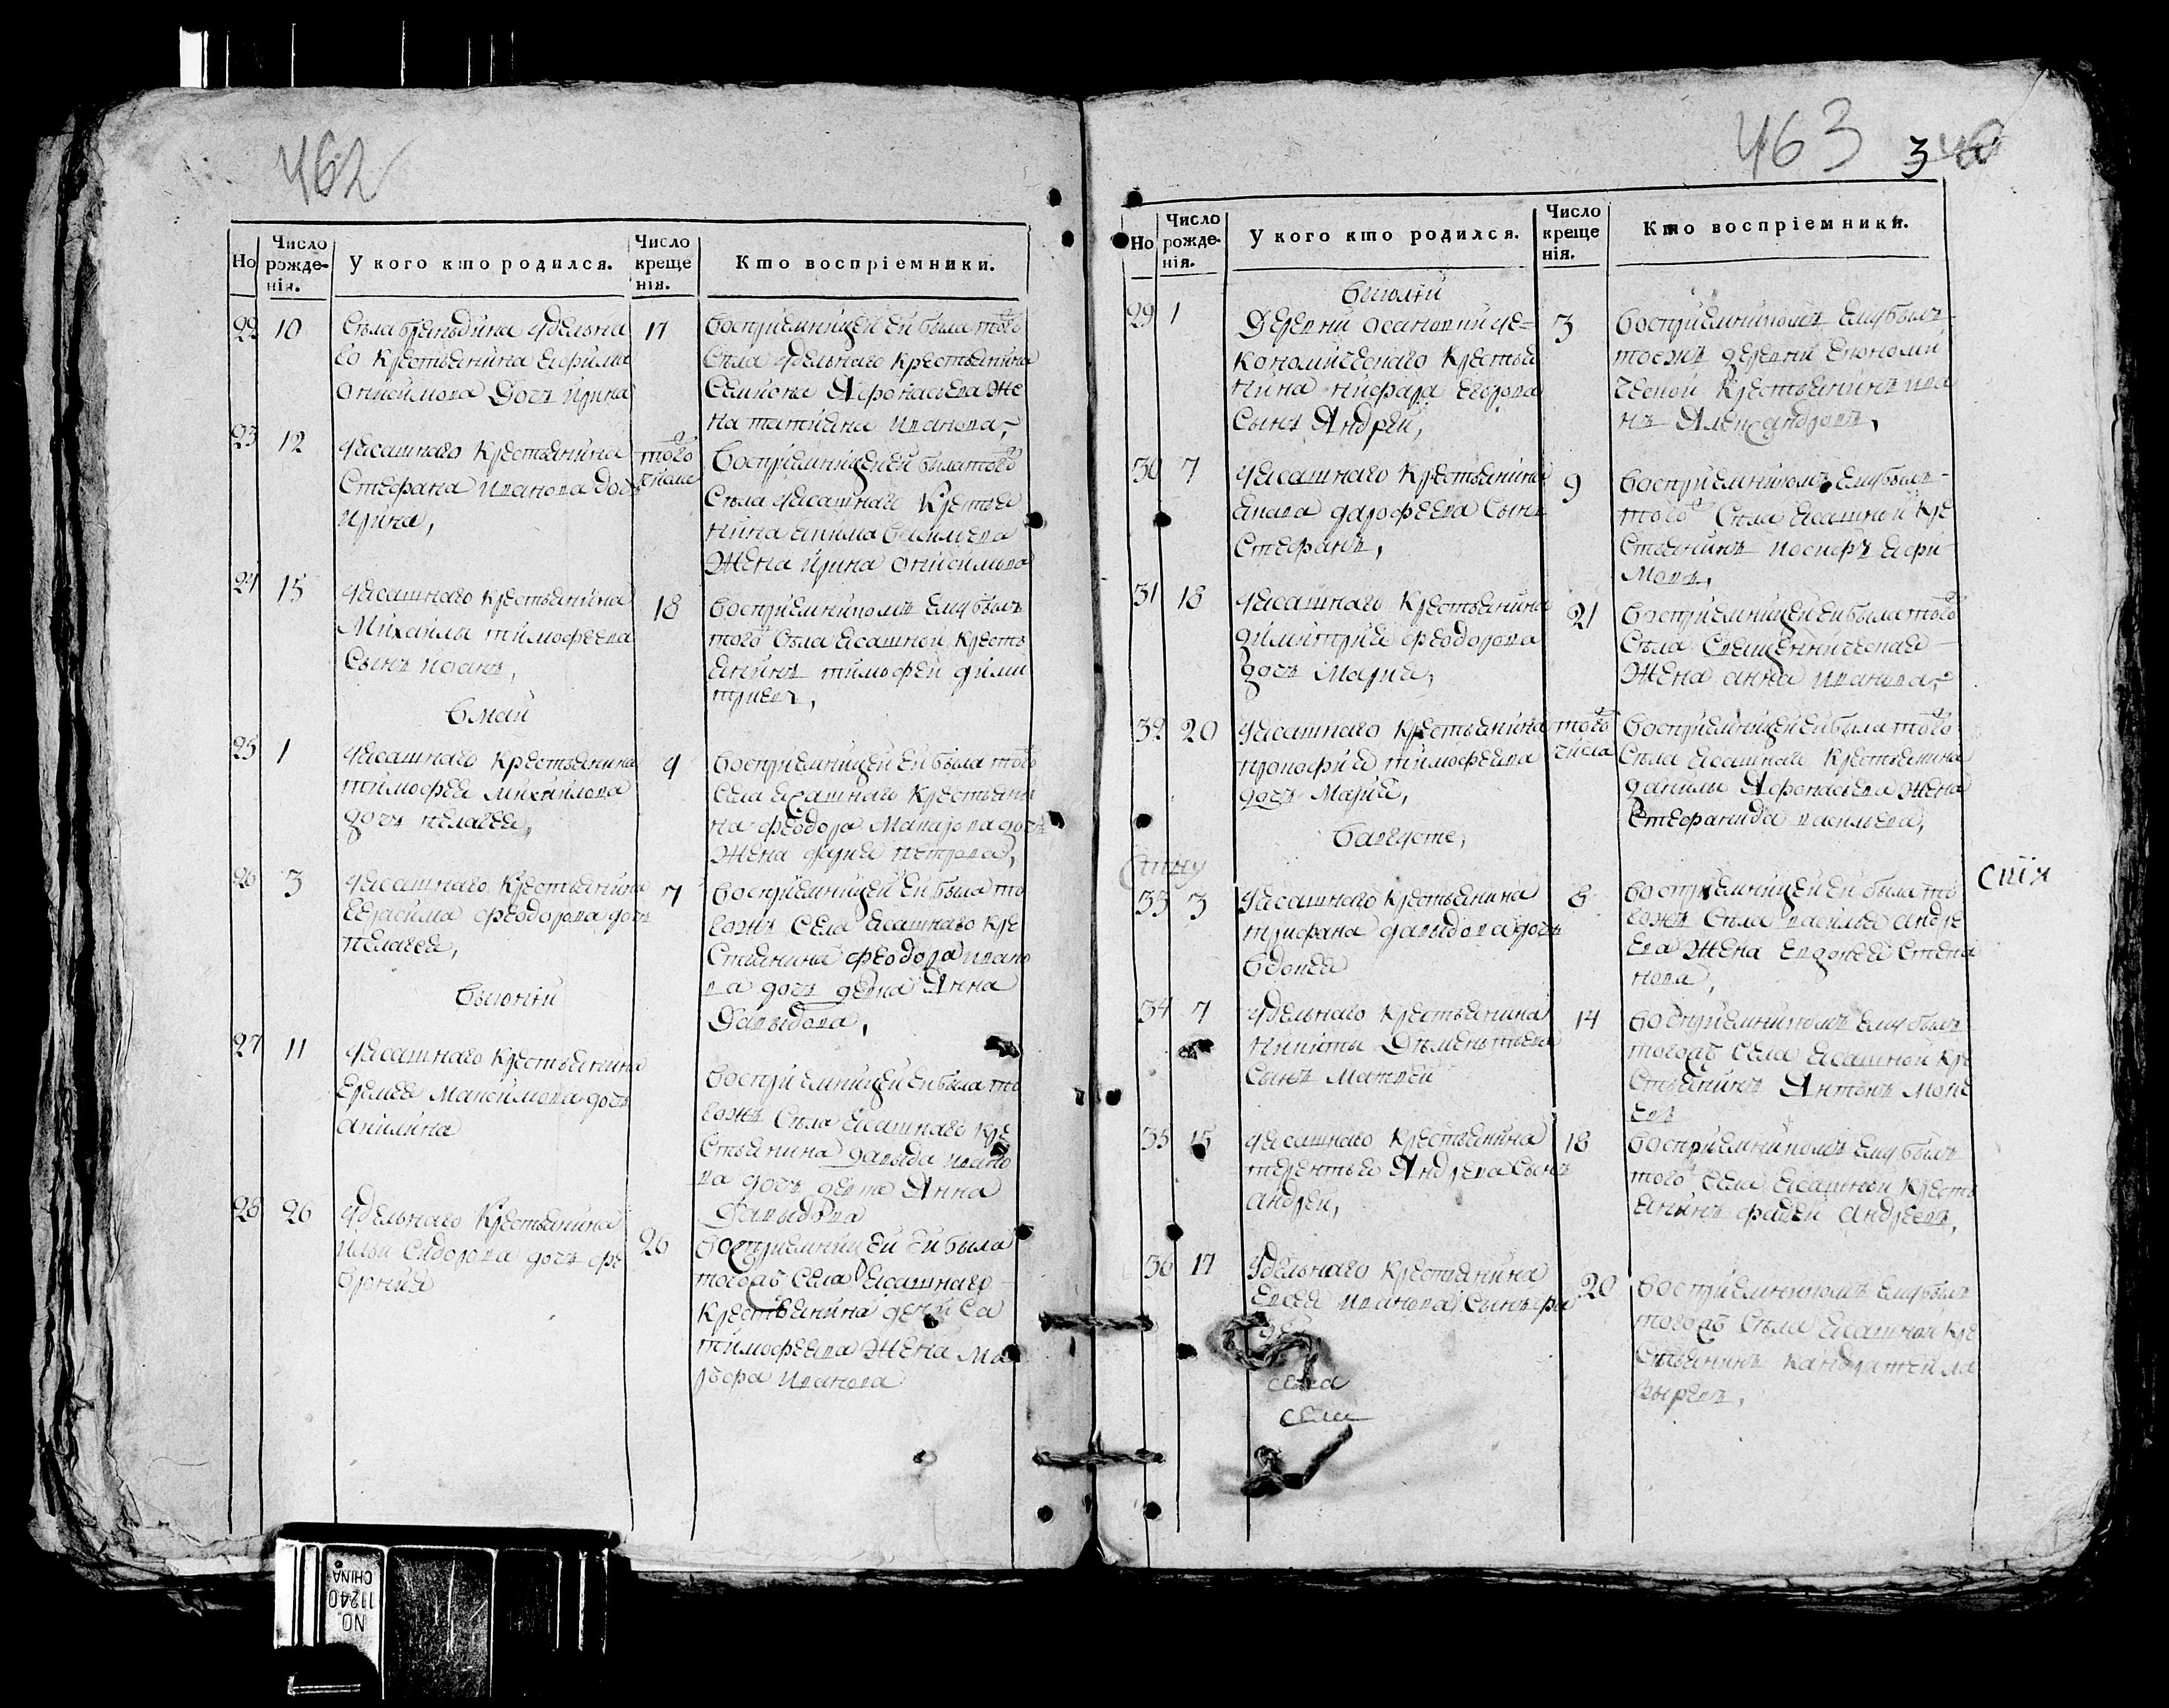 462
Но
Число рожденія.
У кого кто родился.
Число крещенія.
Кто воспріемники.
22 10
Села бреньдина удельна
го крестьянина ефима
онисимова дочь ирина
17
восприемницей ей была того
села удельнаго крестьянина
Семиона Афонасьева же
на татияна иванова,
23 12
ясашнаго крестьянина
Стефана иванова дочь
ирина,
того числа
восприемницей ей была того
села ясашнаго крестья
нина якима васильева
жена ирина онисимова
24 15
ясашнаго крестьянина
Михаилы тимофеева
сынъ иоанъ,
18
восприемникомъ ему былъ
того села ясашной кресть
янинъ тимофей дими
триевъ,
в май
25 1
ясашнаго крестьянина
тимофея михаилова
дочь пелагея,
4
восприемницей ей была того
села ясашнаго крестьяни
на феодора Макарова
жена дария петрова,
26 3
ясашнаго крестьянина
герасима феодорова дочь
пелагея,
7
восприемницей ей была то
гожъ села ясашнаго кре
стьянина феодора ивано
ва дочь девка Анна
Давыдова,
в июнїи
27 11
ясашнаго крестьянина
еремея максимова дочь
акилина
восприемницей ей была то
гожъ села ясашнаго кре
стьянина давыда ивано
ва дочь девка Анна
Давыдова
28 26
удельнаго крестьянина
ильи Сидорова дочь фе
врония
26
восприемницей ей была
тогожъ села ясашнаго
крестьянина дениса
тимофеева жена ма
рѳфа иванова
463 3
Но
Число рожденія.
У кого кто родился.
Число крещенія.
Кто воспріемники.
в июлїи
29 1
Деревни осановки
кономическаго крестья
нина никифара егорова
сынъ Андрей,
3
восприемникомъ ему былъ
тоежъ деревни економи
ческой крестьянинъ ива
нъ Александровъ,
30 7
ясашнаго крестьянина
дарофеева сынъ
Стефанъ,
9
восприемникомъ ему былъ
того села ясашной кре
стьянинъ иосифъ ефи
мовъ,
31 18
ясашнаго крестьянина
димитрия феодорова
дочь Мария,
21
восприемницей ей была того
села священническая
жена анна иванова,
32 20
ясашнаго крестьянина
прокофия тимофеева
дочь Мария,
того числа
восприемницей ей была того
села ясашнаго крестьянина
данилы Афонасьева жена
Стефанида васильева,
в августе,
33 3
ясашнаго крестьянина
трифана давыдова дочь
Евдокея
8
восприемницей ей была то
гожъ села василья андре
ева жена евдокея степа
нова,
сїя
34 7
удельнаго крестьянина
никиты Дементьева
сынъ Матвей
14
восприемникомъ ему былъ
тогожъ села ясашной кре
стьянинъ Антонъ моис
еевъ
35 15
ясашнаго крестьянина
терентья Андреева сынъ
андрей,
18
восприемникомъ ему былъ
того села ясашной кресть
янинъ фадей андреевъ,
36 17
удельнаго крестьянина
евсея иванова сынъ
20
восприемникомъ ему былъ
тогожъ села ясашной кре
стьянинъ кандратей ла
зыревъ,
села
NO.
11240
CHINA